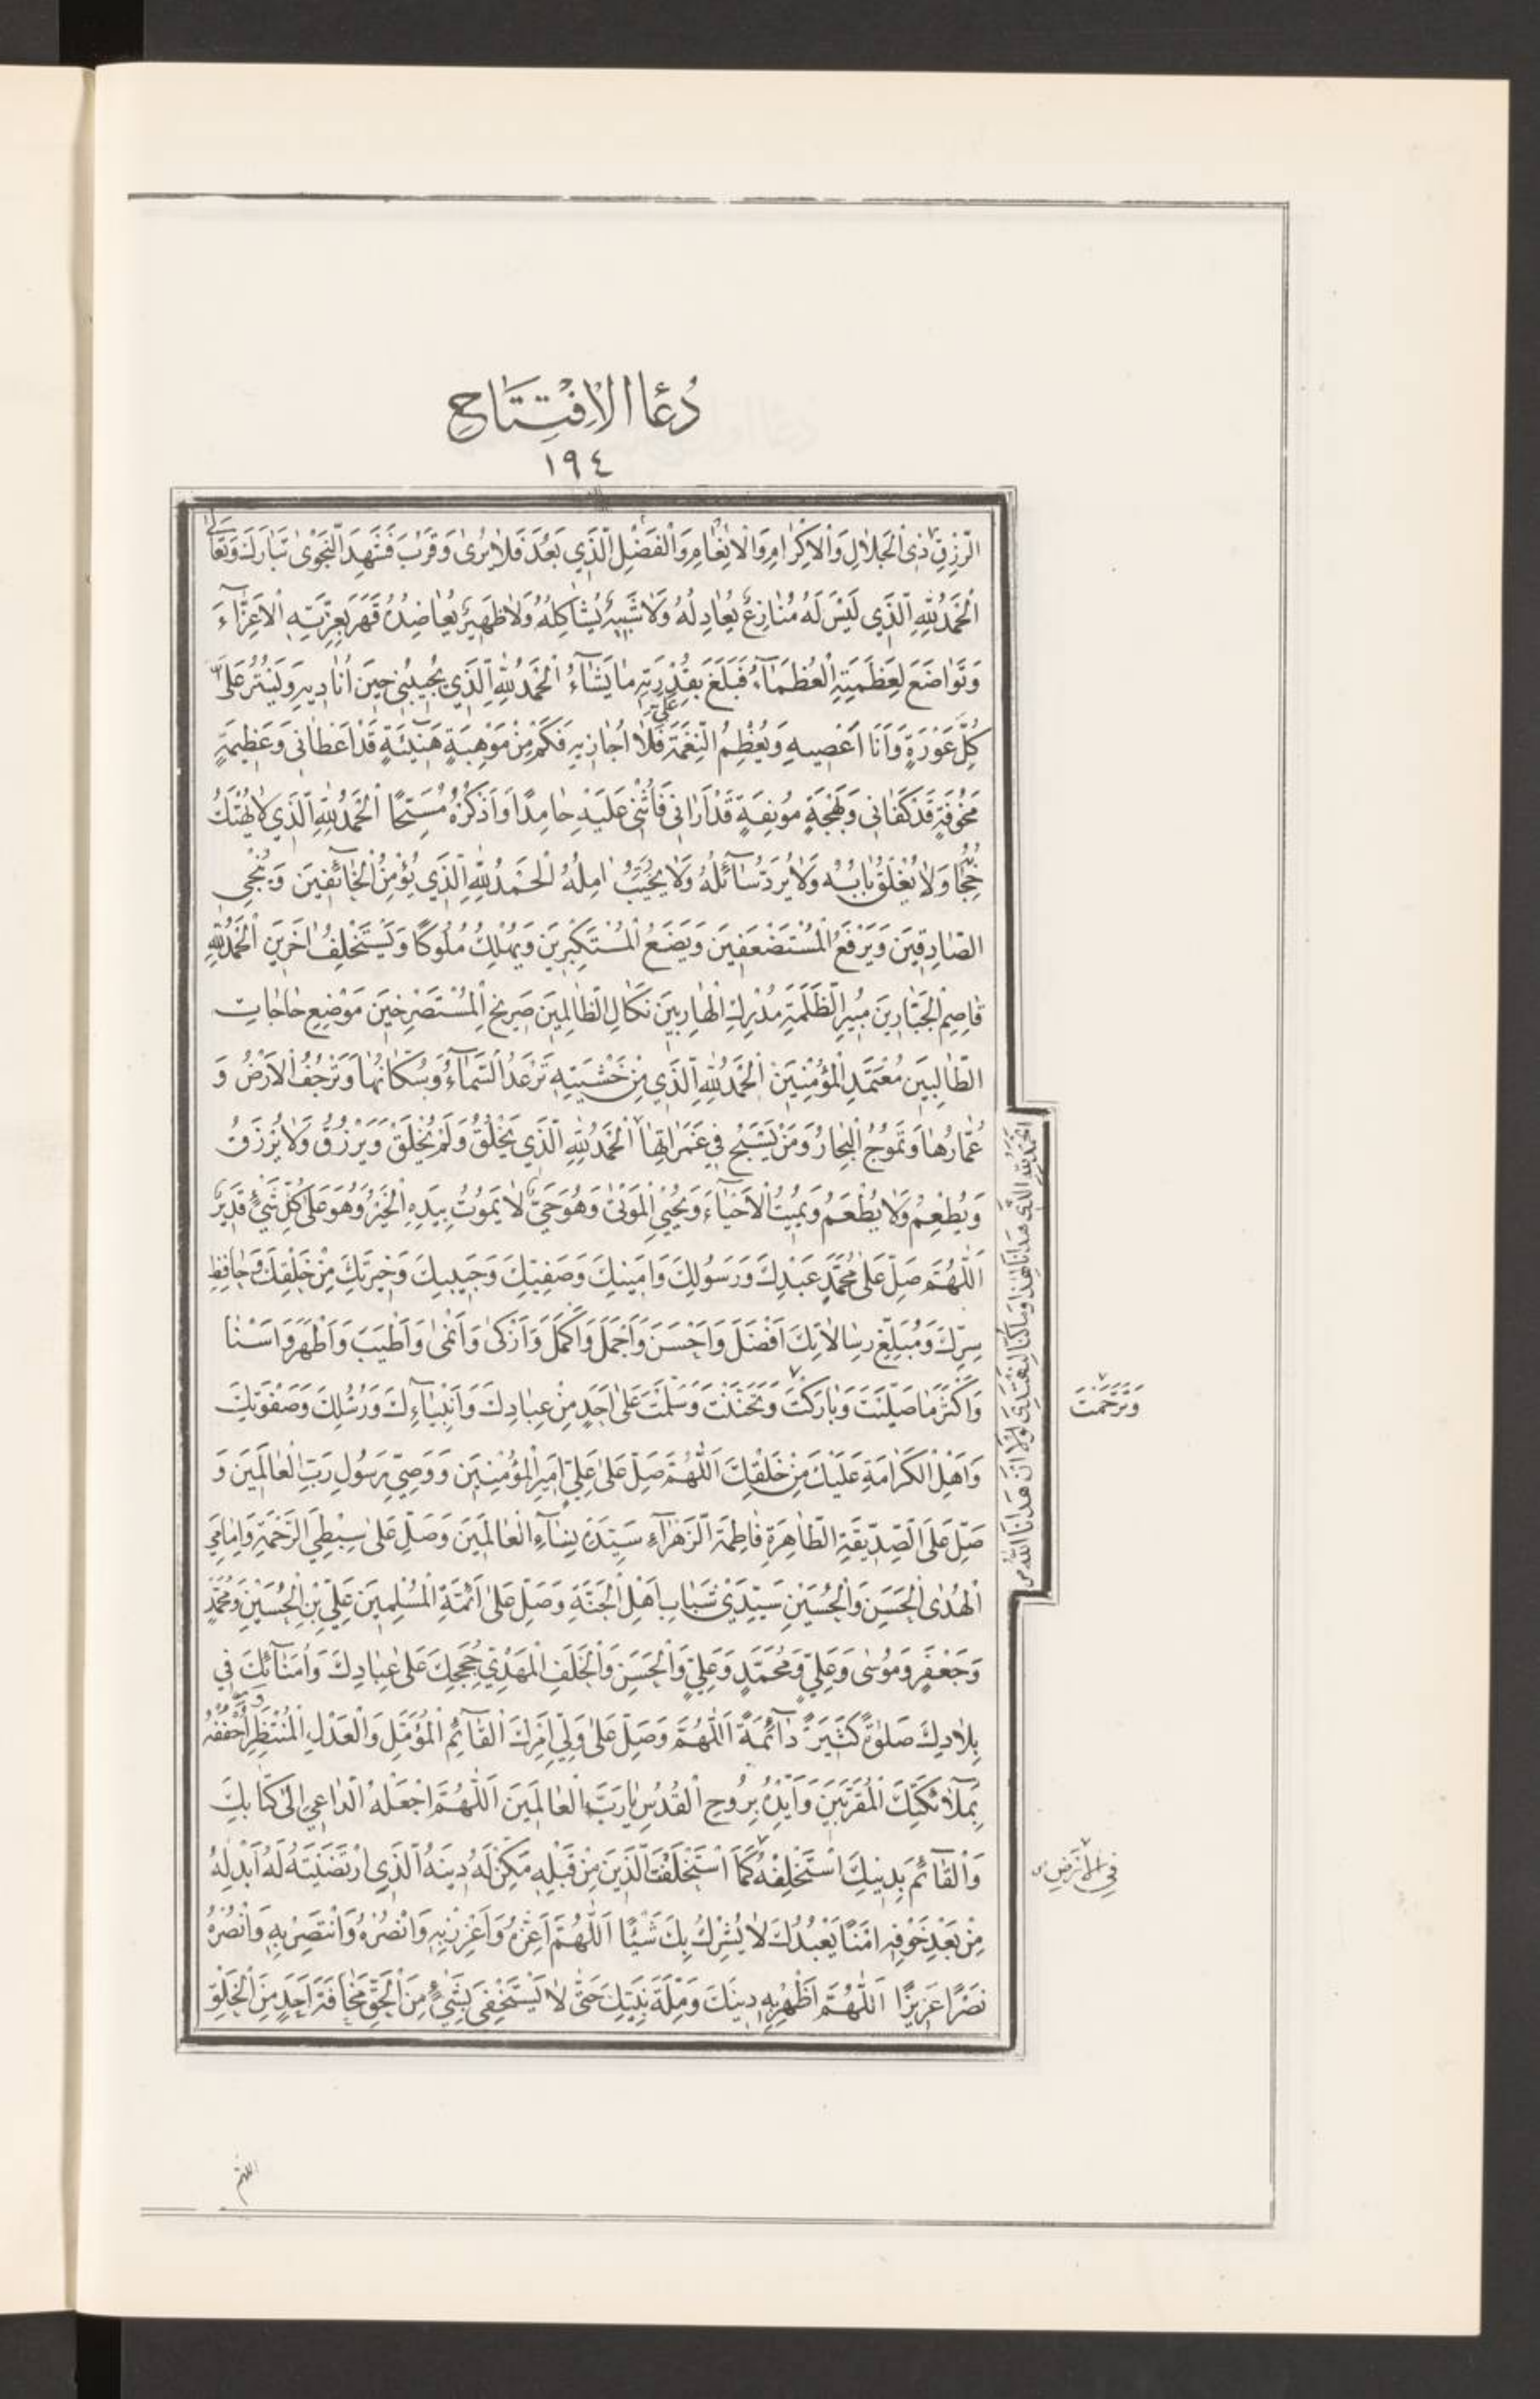 دُعَاءُ الْاِفْتِتَاحِ
١٩٤
الرِّزْقِ ذِي الْجَلَالِ وَالْاِكْرَامِ وَالْاِنْعَامِ وَالْفَضْلِ الَّذِي بَعُدَ فَلَا يُرَىٰ وَقَرُبَ فَشَهِدَ النَّجْوَىٰ تَبَارَكَ وَتَعَالَىٰ
اَلْحَمْدُ لِلّٰهِ الَّذِي لَيْسَ لَهُ مُنَازِعٌ يُعَادِلُهُ وَلَا شَبِيهٌ يُشَاكِلُهُ وَلَا ظَهِيرٌ يُعَاضِدُهُ قَهَرَ بِعِزَّتِهِ الْاَعِزَّآءَ
وَتَوَاضَعَ لِعَظَمَتِهِ الْعُظَمَآءُ فَبَلَغَ بِقُدْرَتِهِ مَا يَشَآءُ اَلْحَمْدُ لِلّٰهِ الَّذِي يُجِيبُنِي حِينَ اُنَادِيهِ وَيَسْتُرُ عَلَيَّ
كُلَّ عَوْرَةٍ وَاَنَا اَعْصِيهِ وَيُعْظِمُ النِّعْمَةَ عَلَيَّ فَلَا اُجَازِيهِ فَكَمْ مِنْ مَوْهِبَةٍ هَنِيٓئَةٍ قَدْ اَعْطَانِي وَعَظِيمَةٍ
مَخُوفَةٍ قَدْ كَفَانِي وَبَهْجَةٍ مُونِقَةٍ قَدْ اَرَانِي فَاُثْنِي عَلَيْهِ حَامِدًا وَاَذْكُرُهُ مُسَبِّحًا اَلْحَمْدُ لِلّٰهِ الَّذِي لَا يُهْتَكُ
حِجَابُهُ وَلَا يُغْلَقُ بَابُهُ وَلَا يُرَدُّ سَآئِلُهُ وَلَا يُخَيَّبُ اٰمِلُهُ اَلْحَمْدُ لِلّٰهِ الَّذِي يُؤْمِنُ الْخَآئِفِينَ وَيُنْجِي
الصَّادِقِينَ وَيَرْفَعُ الْمُسْتَضْعَفِينَ وَيَضَعُ الْمُسْتَكْبِرِينَ وَيُهْلِكُ مُلُوكًا وَيَسْتَخْلِفُ اٰخَرِينَ اَلْحَمْدُ لِلّٰهِ
قَاصِمِ الْجَبَّارِينَ مُبِيرِ الظَّلَمَةِ مُدْرِكِ الْهَارِبِينَ نَكَالِ الظَّالِمِينَ صَرِيخِ الْمُسْتَصْرِخِينَ مَوْضِعِ حَاجَاتِ
الطَّالِبِينَ مُعْتَمَدِ الْمُؤْمِنِينَ اَلْحَمْدُ لِلّٰهِ الَّذِي مِنْ خَشْيَتِهِ تَرْعَدُ السَّمَآءُ وَسُكَّانُهَا وَتَرْجُفُ الْاَرْضُ وَ
عُمَّارُهَا وَتَمُوجُ الْبِحَارُ وَمَنْ يَسْبَحُ فِي غَمَرَاتِهَا اَلْحَمْدُ لِلّٰهِ الَّذِي يَخْلُقُ وَلَمْ يُخْلَقْ وَيَرْزُقُ وَلَا يُرْزَقُ
وَيُطْعِمُ وَلَا يُطْعَمُ وَيُمِيتُ الْاَحْيَآءَ وَيُحْيِي الْمَوْتَىٰ وَهُوَ حَيٌّ لَا يَمُوتُ بِيَدِهِ الْخَيْرُ وَهُوَ عَلَىٰ كُلِّ شَيْءٍ قَدِيرٌ
اَللّٰهُمَّ صَلِّ عَلَىٰ مُحَمَّدٍ عَبْدِكَ وَرَسُولِكَ وَاَمِينِكَ وَصَفِيِّكَ وَحَبِيبِكَ وَخِيَرَتِكَ مِنْ خَلْقِكَ وَحَافِظِ
سِرِّكَ وَمُبَلِّغِ رِسَالَاتِكَ اَفْضَلَ وَاَحْسَنَ وَاَجْمَلَ وَاَكْمَلَ وَاَزْكَىٰ وَاَنْمَىٰ وَاَطْيَبَ وَاَطْهَرَ وَاَسْنَا
وَاَكْثَرَ مَا صَلَّيْتَ وَبَارَكْتَ وَتَحَنَّنْتَ وَسَلَّمْتَ عَلَىٰ اَحَدٍ مِنْ عِبَادِكَ وَاَنْبِيَآءِكَ وَرُسُلِكَ وَصَفْوَتِكَ
وَاَهْلِ الْكَرَامَةِ عَلَيْكَ مِنْ خَلْقِكَ اَللّٰهُمَّ صَلِّ عَلَىٰ عَلِيٍّ اَمِيرِ الْمُؤْمِنِينَ وَوَصِيِّ رَسُولِ رَبِّ الْعَالَمِينَ وَ
صَلِّ عَلَى الصِّدِّيقَةِ الطَّاهِرَةِ فَاطِمَةَ الزَّهْرَآءِ سَيِّدَةِ نِسَآءِ الْعَالَمِينَ وَصَلِّ عَلَىٰ سِبْطَيِ الرَّحْمَةِ وَاِمَامَيِ
الْهُدَىٰ الْحَسَنِ وَالْحُسَيْنِ سَيِّدَيْ شَبَابِ اَهْلِ الْجَنَّةِ وَصَلِّ عَلَىٰ اَئِمَّةِ الْمُسْلِمِينَ عَلِيِّ بْنِ الْحُسَيْنِ وَمُحَمَّدٍ
وَجَعْفَرٍ وَمُوسَىٰ وَعَلِيٍّ وَمُحَمَّدٍ وَعَلِيٍّ وَالْحَسَنِ وَالْخَلَفِ الْمَهْدِيِّ حُجَجِكَ عَلَىٰ عِبَادِكَ وَاُمَنَآئِكَ فِي
بِلَادِكَ صَلٰوةً كَثِيرَةً دَآئِمَةً اَللّٰهُمَّ وَصَلِّ عَلَىٰ وَلِيِّ اَمْرِكَ الْقَآئِمِ الْمُؤَمَّلِ وَالْعَدْلِ الْمُنْتَظَرِ وَحُفَّهُ
بِمَلٰٓئِكَتِكَ الْمُقَرَّبِينَ وَاَيِّدْهُ بِرُوحِ الْقُدُسِ يَا رَبَّ الْعَالَمِينَ اَللّٰهُمَّ اجْعَلْهُ الدَّاعِيَ اِلَىٰ كِتَابِكَ
وَالْقَآئِمَ بِدِينِكَ اسْتَخْلِفْهُ كَمَا اسْتَخْلَفْتَ الَّذِينَ مِنْ قَبْلِهِ مَكِّنْ لَهُ دِينَهُ الَّذِي ارْتَضَيْتَهُ لَهُ اَبْدِلْهُ
مِنْ بَعْدِ خَوْفِهِ اَمْنًا يَعْبُدُكَ لَا يُشْرِكُ بِكَ شَيْئًا اَللّٰهُمَّ اَعِزَّهُ وَاَعْزِزْ بِهِ وَانْصُرْهُ وَانْتَصِرْ بِهِ وَانْصُرْهُ
نَصْرًا عَزِيزًا اَللّٰهُمَّ اَظْهِرْ بِهِ دِينَكَ وَمِلَّةَ نَبِيِّكَ حَتَّىٰ لَا يَسْتَخْفِيَ بِشَيْءٍ مِنَ الْحَقِّ مَخَافَةَ اَحَدٍ مِنَ الْخَلْقِ
اَلْحَمْدُ لِلّٰهِ الَّذِي هَدَانَا لِهٰذَا وَمَا كُنَّا لِنَهْتَدِيَ لَوْلَا اَنْ هَدَانَا اللّٰهُ
وَتَرَحَّمْتَ
فِي الْاَرْضِ
اللهم